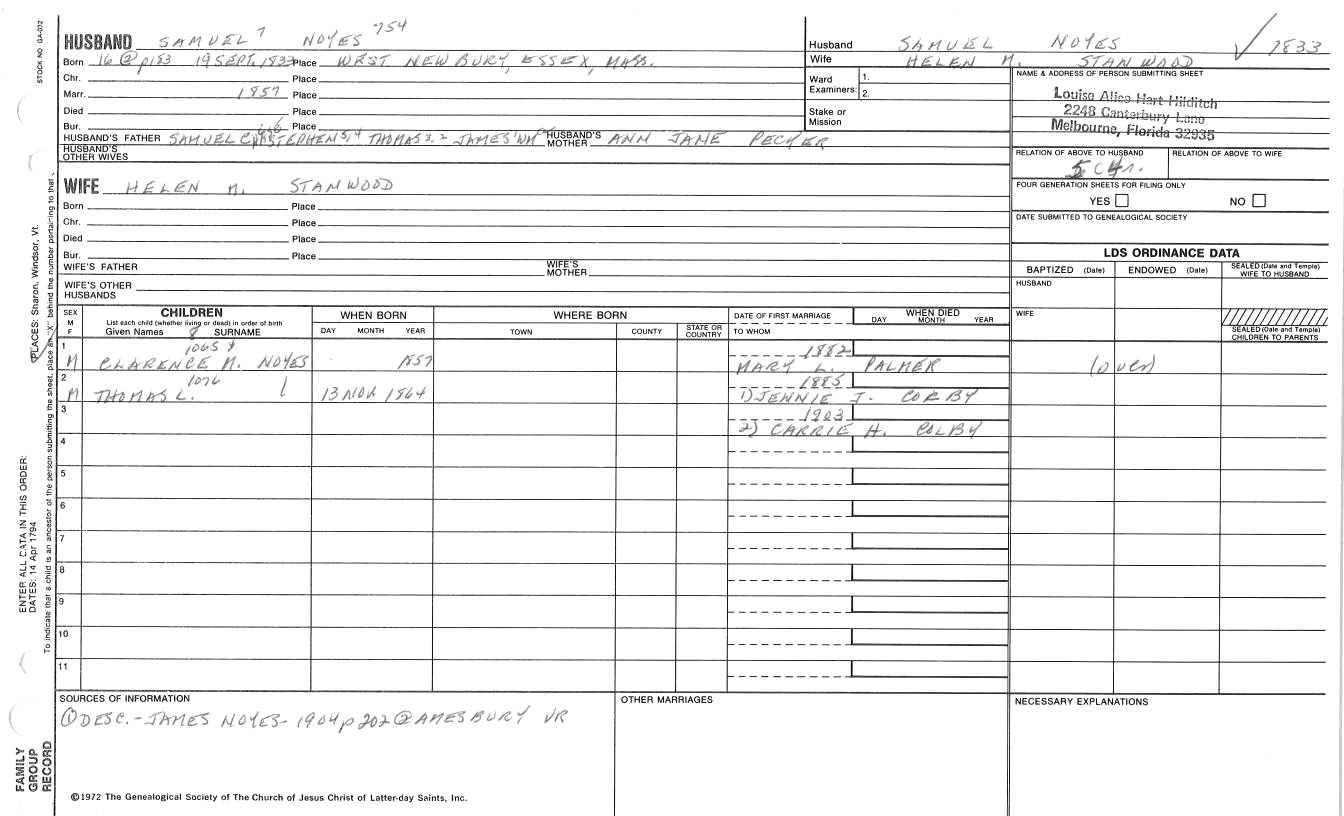 STOCK NO GA-032
HUSBAND SAMUEL 7 NOYES 754
Born 16 @ p183 19 SEPT. 1833 Place WRST NEW BURY, ESSEX, MASS.
Chr. Place
Marr. 1857 Place
Died Place
Bur. Place
HUSBAND'S FATHER SAMUEL STEPHEN 5,4 THOMAS 3,2 JAMES' HUSBAND'S MOTHER ANN JANE PECKER
HUSBAND'S OTHER WIVES
Husband SAMUEL NOYES 1833
Wife HELEN M. STANWOOD
Ward Examiners: 1.
2.
Stake or Mission
NAME & ADDRESS OF PERSON SUBMITTING SHEET
Louise Alice Hart Hilditch
2248 Canterbury Lane
Melbourne, Florida 32935
RELATION OF ABOVE TO HUSBAND RELATION OF ABOVE TO WIFE
FOUR GENERATION SHEETS FOR FILING ONLY
YES NO
DATE SUBMITTED TO GENEALOGICAL SOCIETY
WIFE HELEN M. STANWOOD
Born Place
Chr. Place
Died Place
Bur. Place
WIFE'S FATHER WIFE'S MOTHER
WIFE'S OTHER HUSBANDS
LDS ORDINANCE DATA
BAPTIZED (Date) ENDOWED (Date) SEALED (Date and Temple) WIFE TO HUSBAND
HUSBAND
WIFE
SEALED (Date and Temple) CHILDREN TO PARENTS
SEX M F
CHILDREN
List each child (whether living or dead) in order of birth
Given Names 8 SURNAME
WHEN BORN
DAY MONTH YEAR
WHERE BORN
TOWN COUNTY STATE OR COUNTRY
DATE OF FIRST MARRIAGE
TO WHOM
WHEN DIED
DAY MONTH YEAR
1 1065 1882
M CLARENCE M. NOYES 1857 MARY L. PALMER (over)
2 1076 1885
M THOMAS L. 13 NOV 1864 1) JENNIE J. CORBY
3 1903
2) CARRIE H. COLBY
4
5
6
7
8
9
10
11
SOURCES OF INFORMATION
① DESC. - JAMES NOYES - 1904 p 202 @ AMESBURY VR
OTHER MARRIAGES
NECESSARY EXPLANATIONS
©1972 The Genealogical Society of The Church of Jesus Christ of Latter-day Saints, Inc.
FAMILY GROUP RECORD
ENTER ALL DATA IN THIS ORDER:
DATES: 14 Apr 1794
PLACES: Sharon, Windsor, Vt.
To indicate that a child is an ancestor of the person submitting the sheet, place an "X" behind the number pertaining to that